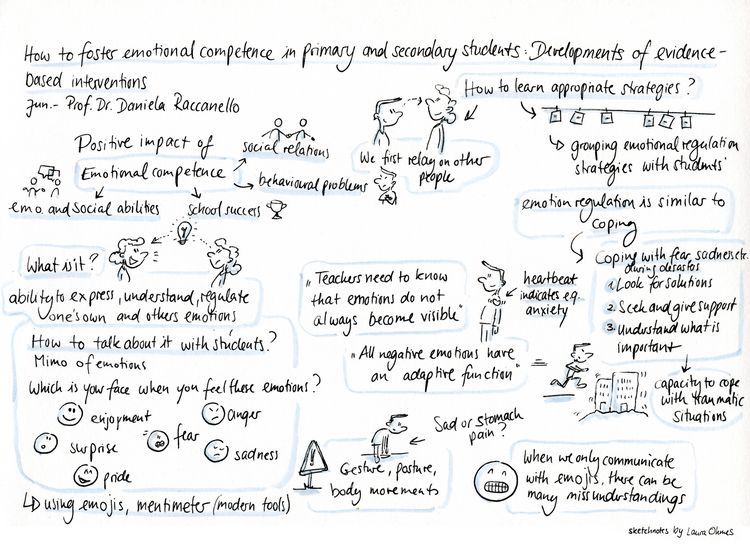 How to foster emotional competence in primary and secondary students: Developments of evidence-
based interventions
Jun.- Prof. Dr. Daniela Raccanello
How to learn appropriate strategies?
Positive impact of
Emotional competence
social relations
behavioural problems
emo. and social abilities
school success
We first relay on other
people
↳ grouping emotional regulation
strategies with students
emotion regulation is similar to
coping
Coping with fear, sadness etc.
during desastos
1. Look for solutions
2. Seek and give support
3. Understand what is
important
capacity to cope
with traumatic
situations
What is it?
ability to express, understand, regulate
one's own and others emotions
How to talk about it with students?
Mimo of emotions
Which is your face when you feel these emotions?
enjoyment
anger
surprise
fear
sadness
pride
↳ using emojis, mentimeter (modern tools)
"Teachers need to know
that emotions do not
always become visible"
heartbeat
indicates e.g.
anxiety
"All negative emotions have
an adaptive function"
=
Sad or stomach
pain?
!
Gesture, posture,
body movements
When we only communicate
with emojis, there can be
many missunderstandings
sketchnotes by Laura Ohmes